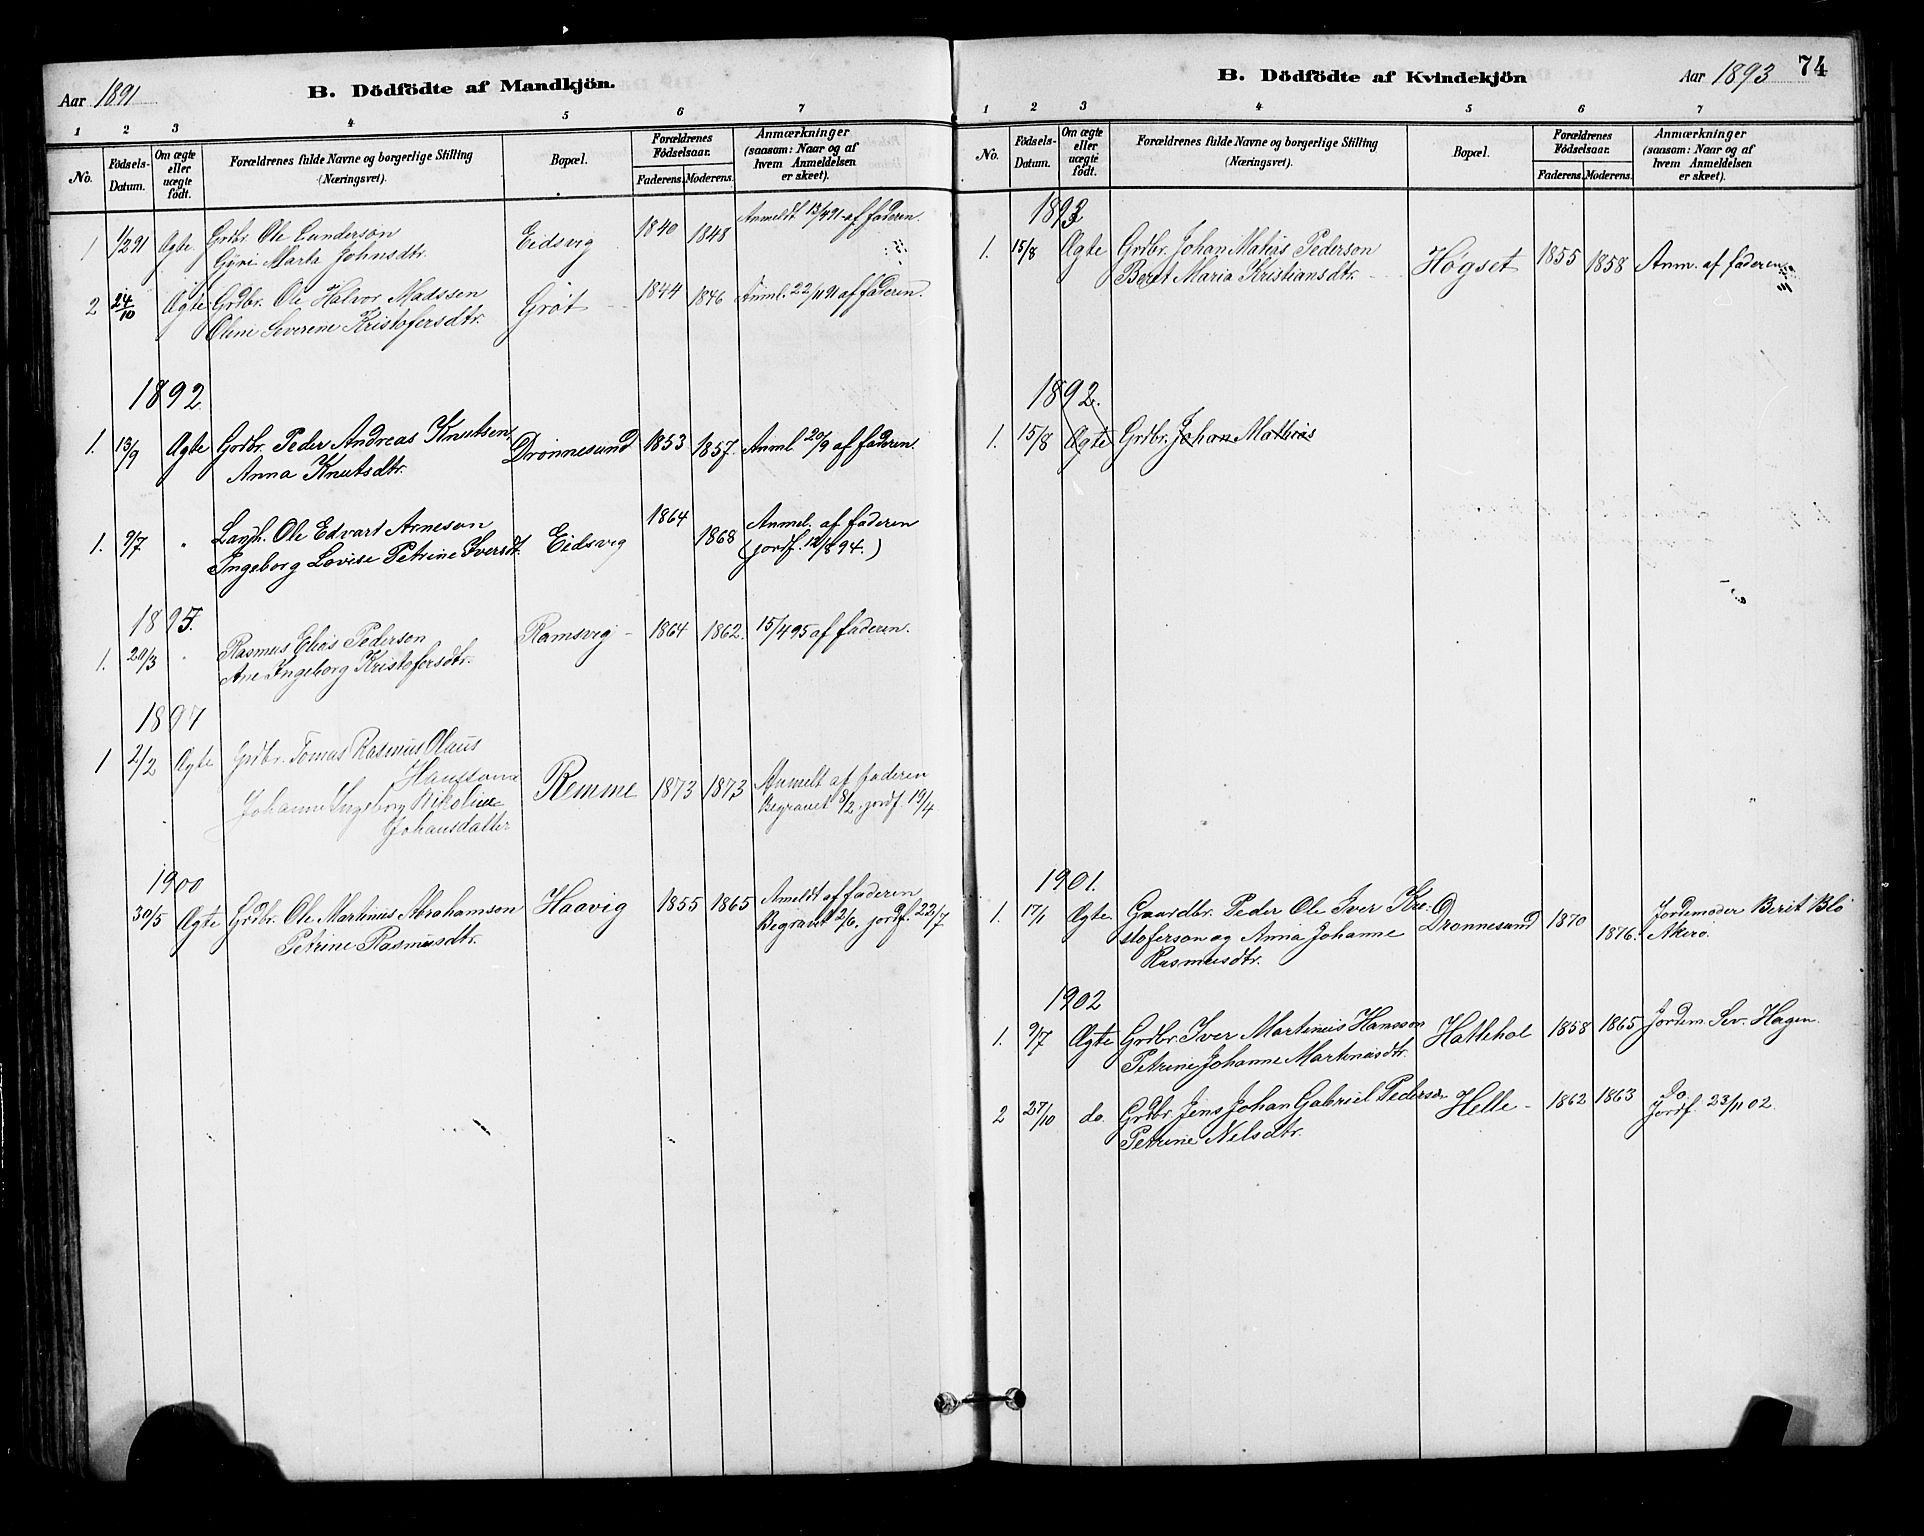 Aar 1891
B. Dödfödte af Mandkjön.
1 2 3 4 5 6 7
No.
Födsels-Datum.
Om ægte eller uægte födt.
Forældrenes fulde Navne og borgerlige Stilling
(Næringsvei).
Bopæl.
Forældrenes Födselsaar.
Faderens. Moderens.
Anmærkninger
(saasom: Naar og af
hvem Anmeldelsen
er skeet).
1 1/2 91 Ægte Grdbr. Ole Gunderson Eidsvig 1840 1848 Anmeldt 13/4 91 af faderen.
Marta Johnsdtr.
2 24/10 Ægte Grdbr. Ole Halvor Madssen Grøt 1844 1846 Anml. 22/11 91 af faderen.
Oline Severene Kristofersdtr.
1892
1. 13/9 Ægte Grdbr. Peder Andreas Knutsen, Drønnesund 1853 1857. Anml. 20/9 af faderen.
Anna Knutsdtr.
1. 9/7 " Ole Edvart Arneson Eidsvig 1864 1868 Anmel. af faderen
Ingeborg Lovise Petrine Iversdt. (jordf. 12/8 94.)
1895.
1. 20/3 " Rasmus Elias Pederson Ramsvig 1864 1862. 15/4 95 af faderen.
Ane Ingeborg Kristofersdtr.
1897
1 2/2 Ægte Grdbr. Tomas Rasmus Olaus
Hansson Remme 1873 1873 Anmelt af faderen
Johanne Ingeborg Nikoline Begravet 8/2. jordf. 19/4
Johansdatter
1900
30/5 Ægte Grdbr. Ole Martinus Abrahamson Haavig 1855 1865 Ameldt af faderen
Petrine Rasmusdtr. Begravet 2/6. jordf. 22/7
B. Dödfödte af Kvindekjön
Aar 1893 74
1 2 3 4 5 6 7
No.
Födsels-Datum.
Om ægte eller uægte födt.
Forældrenes fulde Navne og borgerlige Stilling
(Næringsvei).
Bopæl.
Forældrenes Födselsaar.
Faderens. Moderens.
Anmærkninger
(saasom: Naar og af
hvem Anmeldelsen
er skeet).
1893
1. 15/8 Ægte Grdbr. Johan Matias Pederson Høgset 1855 1858 Anm. af faderen
Beret Maria Kristiansdtr.
1892.
1. 15/8 Ægte Grdbr. Johan Mathias
1901.
1. 17/1 Ægte Gaardbr. Peder Ole Iver Kri- Drønnesund 1870 1876. Jordemoder Berit Blø
stoferson og Anna Johanne Akerø.
Rasmusdtr.
1902
1. 9/7 Ægte Grdbr. Iver Martinius Hansson Hattehol 1858 1865 Jordem. Sev. Hagen
Petrine Johanne Martinusdtr.
2 27/10 do Grdbr. Jens Johan Gabriel Pederson Helle 1862 1863 Do
Petrine Nilsdtr. Jordf. 23/11 02.